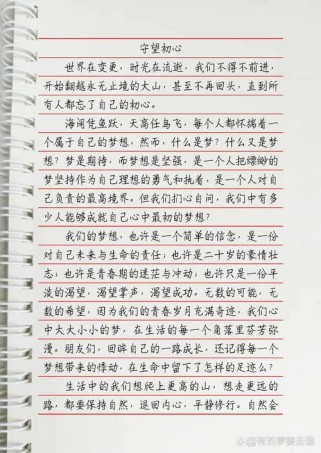 守望初心
世界在变更，时光在流逝，我们不得不前进，
开始翻越永无止境的大山，甚至不再回头，直到所
有人都忘了自己的初心。
海阔凭鱼跃，天高任鸟飞，每个人都怀揣着一
个属于自己的梦想，然而，什么是梦？什么又是梦
想？梦是期待，而梦想是坚强，是一个人把缥缈的
梦坚持作为自己理想的勇气和执着，是一个人对自
己负责的最高境界。但我们扪心自问，我们中有多
少人能够成就自己心中最初的梦想？
我们的梦想，也许是一个简单的信念，是一份
对自己未来与生命的责任；也许是二十岁的豪情壮
志；也许是青春期的迷茫与冲动；也许只是一份平
淡的渴望，渴望掌声，渴望成功。无数的可能，无
数的希望，因为我们的青春岁月充满奇迹，我们心
中大大小小的梦，在生活的每一个角落里芬芳弥
漫。朋友们，回眸自己的一路成长，还记得每一个
梦想带来的悸动，在生命中留下了怎样的足迹么？
生活中的我们想爬上更高的山，想走更远的
路，都要保持自然，退回内心，平静修行。自然会